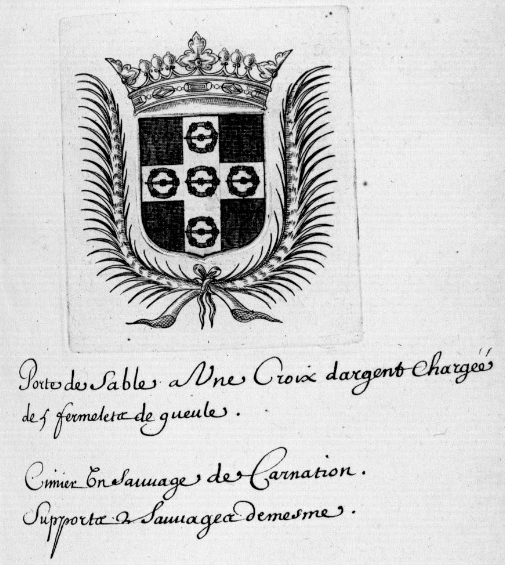 Porte de Sable a Une Croix dargent Chargéé
de 5 fermelets de gueule.
Cimier Un sauuage de Carnation.
Supports 2 Sauuages demesme.